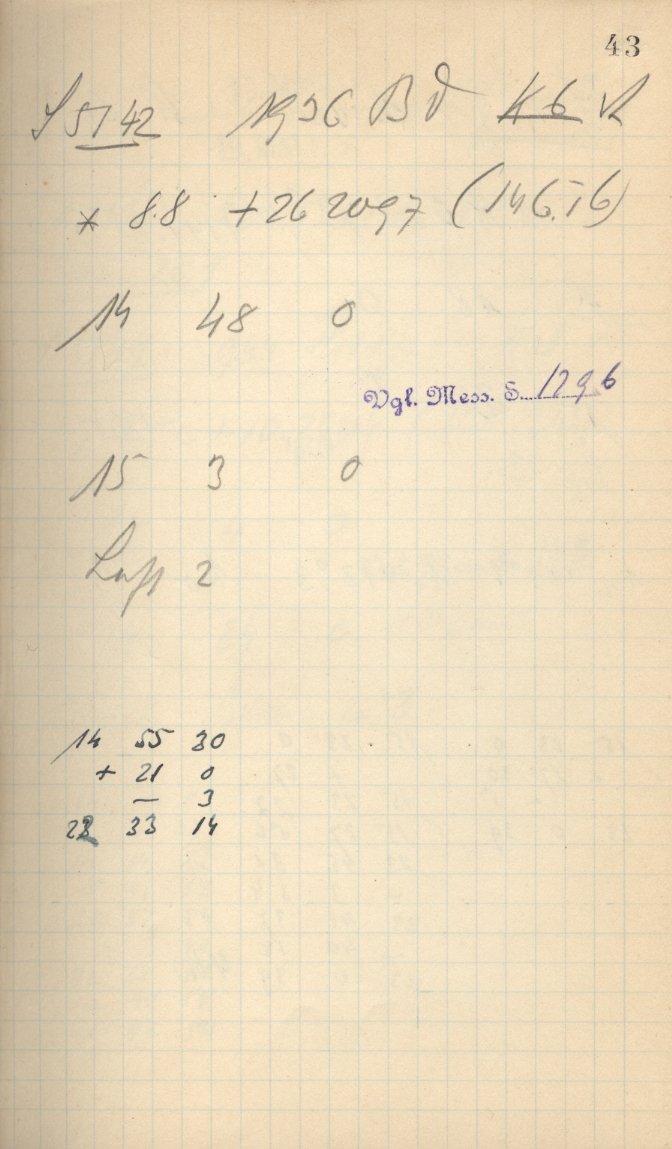 43
S 5142 1936 Bd K6 R
* 8.8 +26 2097 (146.I6)
14 48 0
Vgl. Mess. S. 1296
15 3 0
Luft 2
14 55 30
+ 21 0
— 3
23 33 14